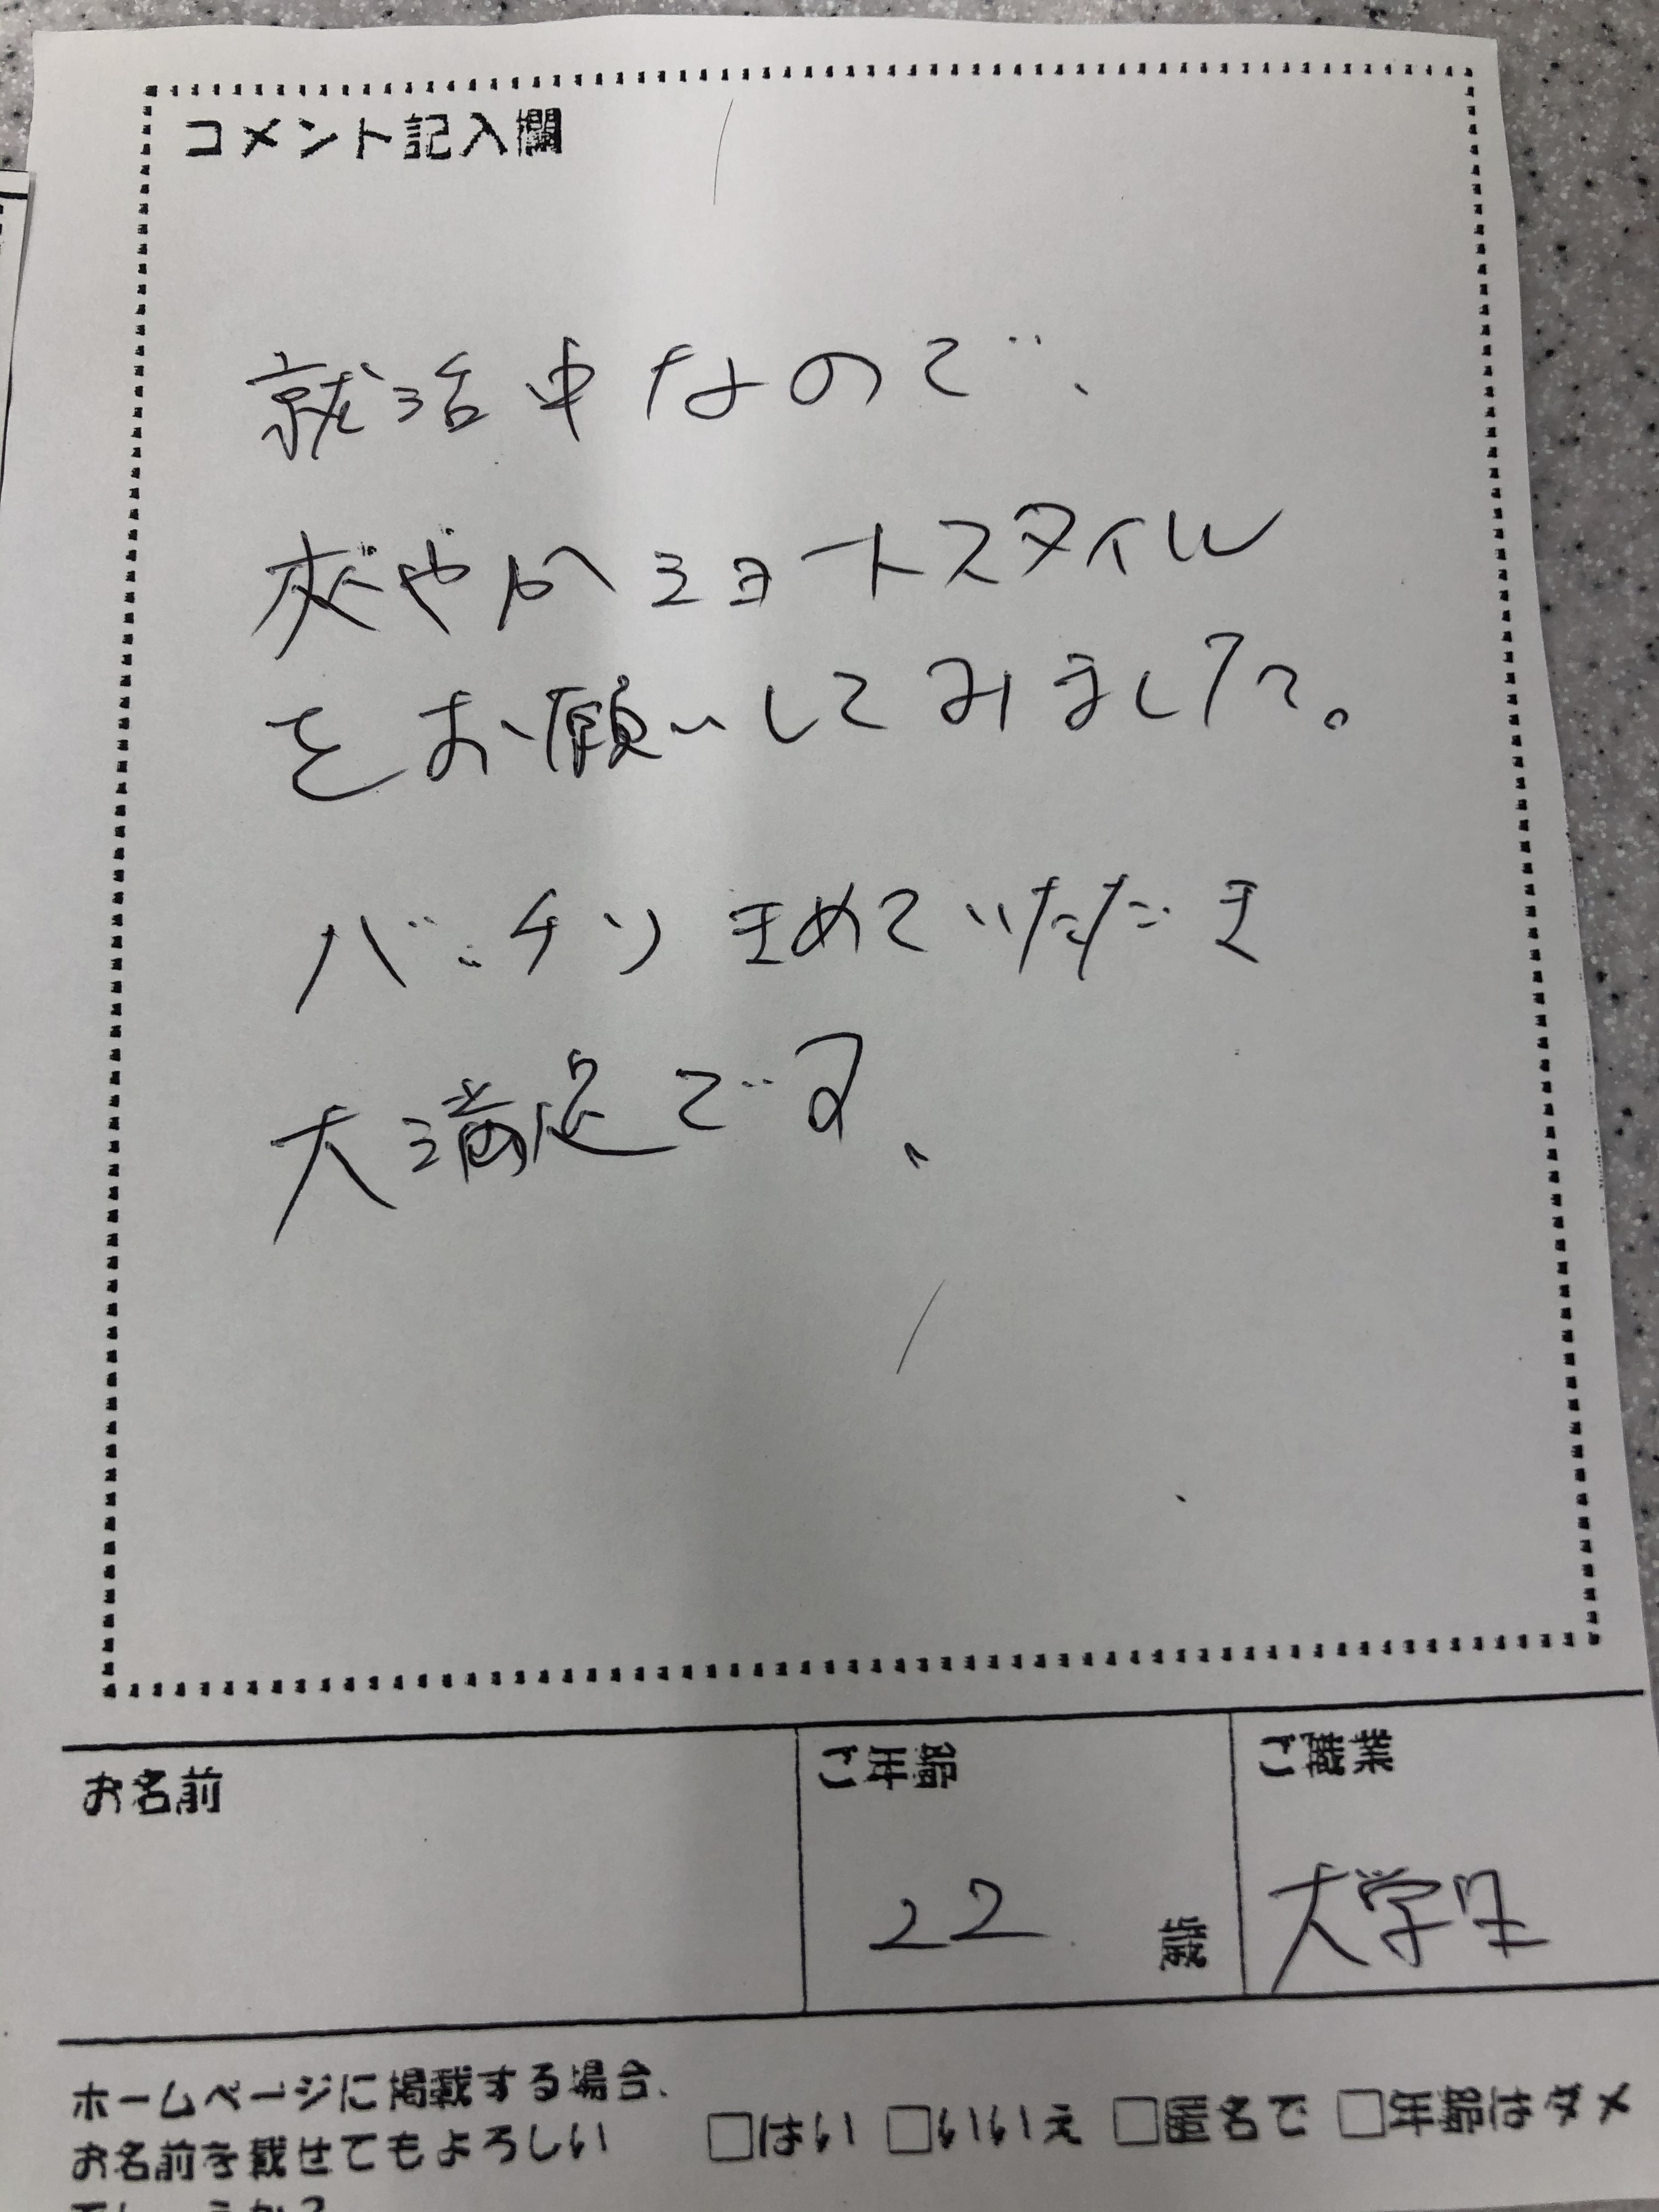 コメント記入欄
就活中なので、
爽やかショートスタイル
をお願いしてみました。
バッチリきめていただき
大満足です、
お名前
ご年齢
22 歳
ご職業
大学生
ホームページに掲載する場合、
お名前を載せてもよろしい
でしょうか?
□はい □いいえ □匿名で □年齢はダメ